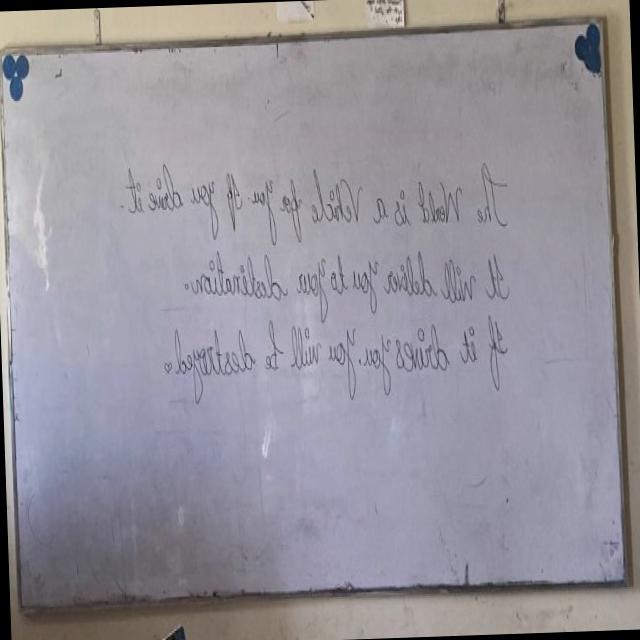 The World is a Vehicle for you. If you drive it.
It will deliver you to your destination.
If it drives you. You will be destroyed.